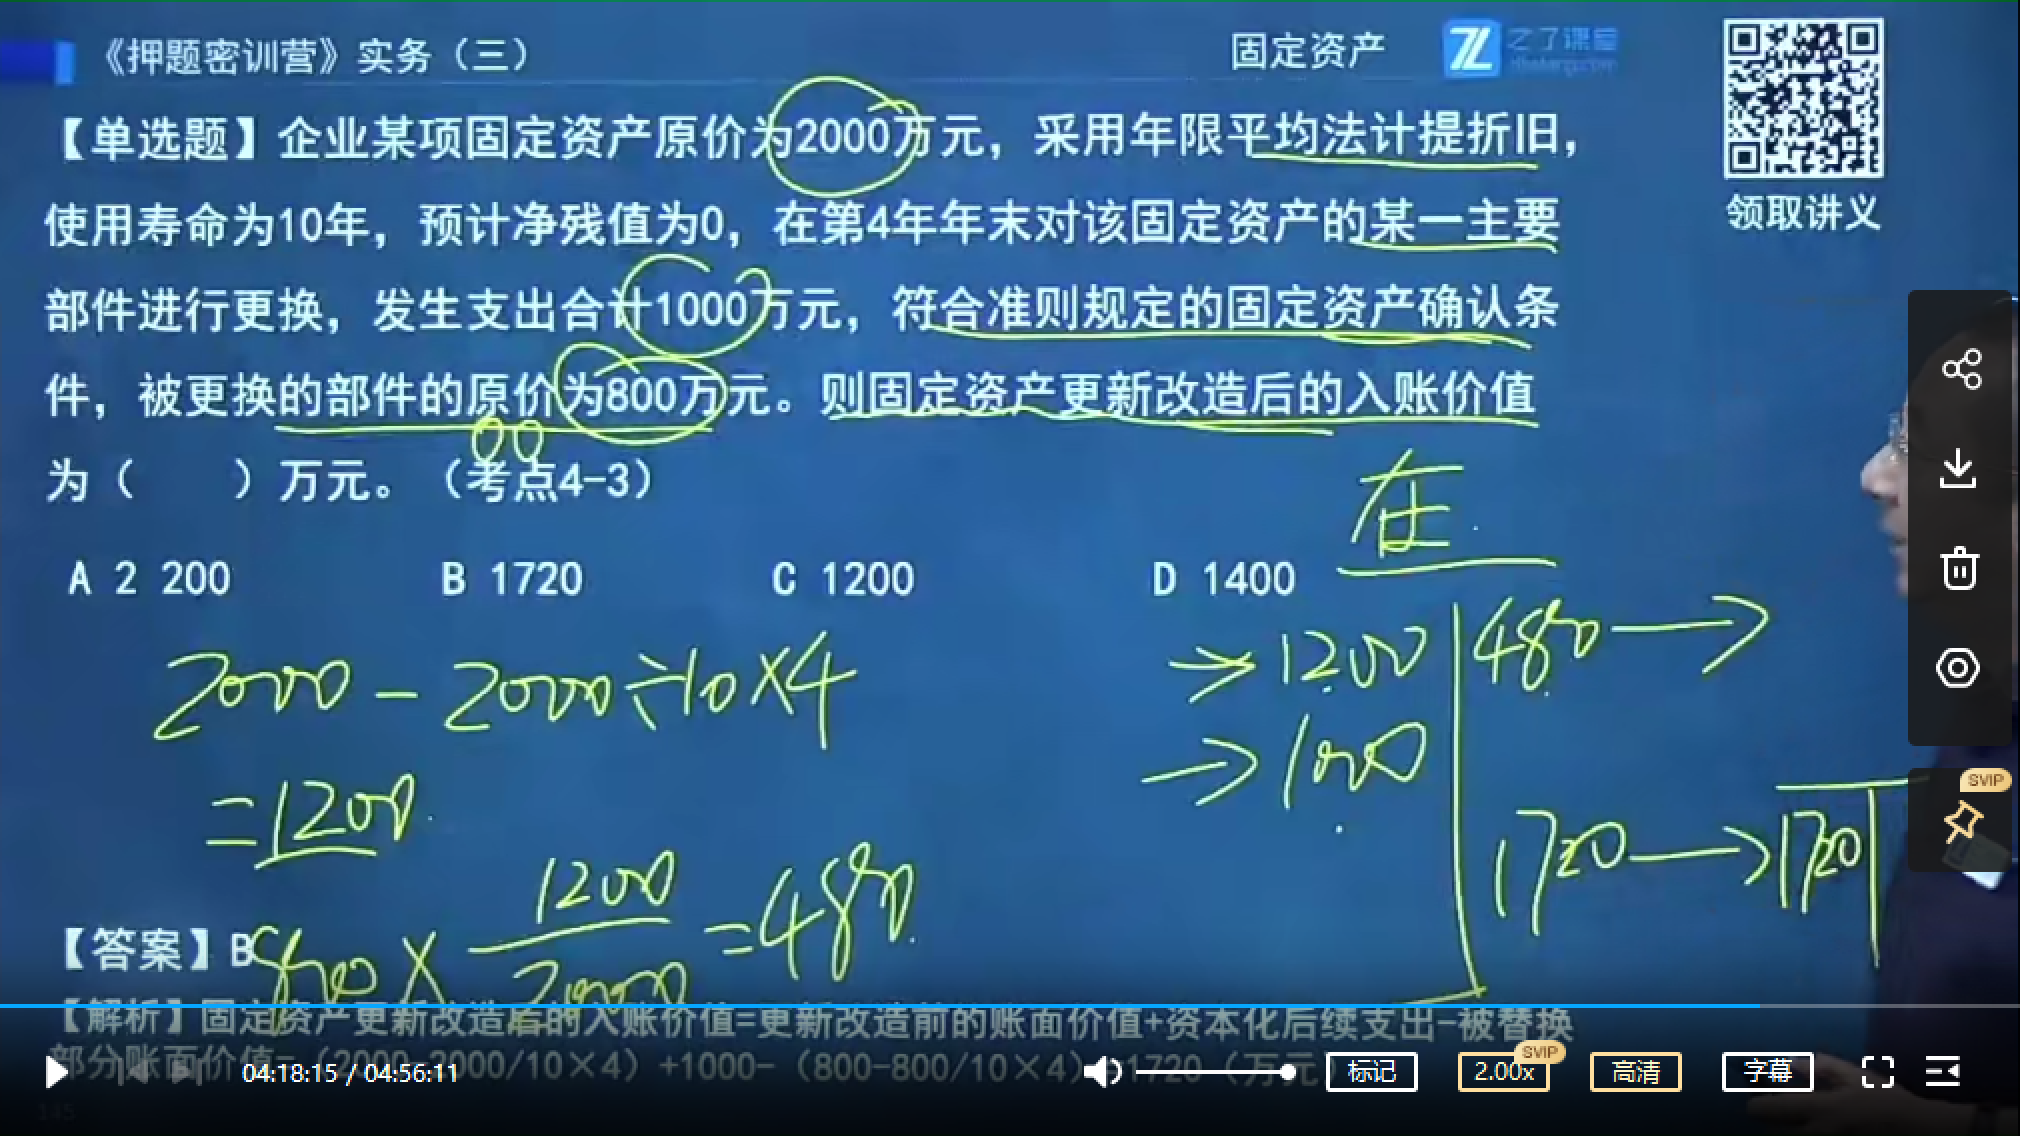 《押题密训营》实务（三）
固定资产
之了课堂
领取讲义
【单选题】企业某项固定资产原价为2000万元，采用年限平均法计提折旧，
使用寿命为10年，预计净残值为0，在第4年年末对该固定资产的某一主要
部件进行更换，发生支出合计1000万元，符合准则规定的固定资产确认条
件，被更换的部件的原价为800万元。则固定资产更新改造后的入账价值
为（ ）万元。（考点4-3）
A 2 200 B 1720 C 1200 D 1400
在
2000-2000÷10×4
=1200
800× 1200/2000 =480
1200 480
1000
1720 1720
【答案】B
【解析】固定资产更新改造后的入账价值=更新改造前的账面价值+资本化后续支出-被替换
部分账面价值=（2000-2000/10×4）+1000-（800-800/10×4）=1720（万元）
04:18:15 / 04:56:11
标记
SVIP
2.00x
高清
字幕
SVIP
145